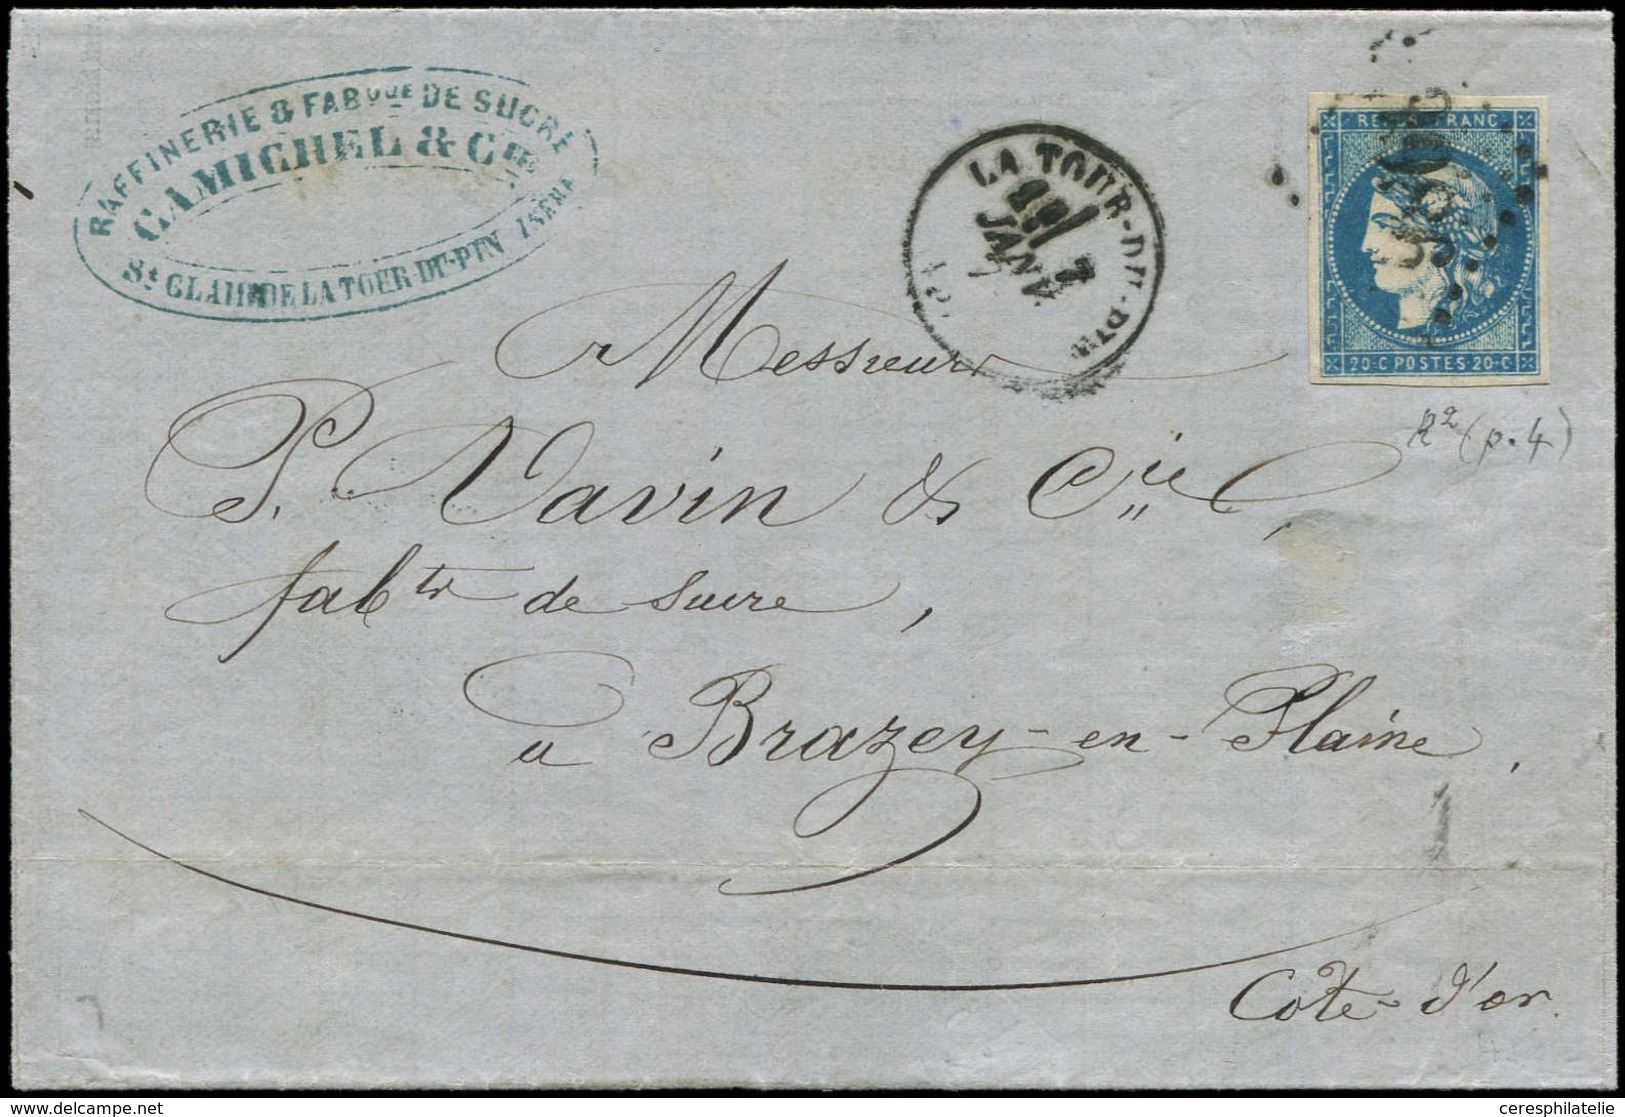 RAFFINERIE & FABQUE DE SUCRE
CAMICHEL & Cie
St CLAIR DE LA TOUR-DU-PIN ISERE
LA TOUR-DU-PIN
JANV
REPUB FRANC
20-C POSTES 20-C
R2 (p.4)
Messieurs
P. Vavin & Cie,
fabts de sucre,
à Brazey-en-Plaine,
1
Cote-d'or.
delcampe.net
ceresphilatelie